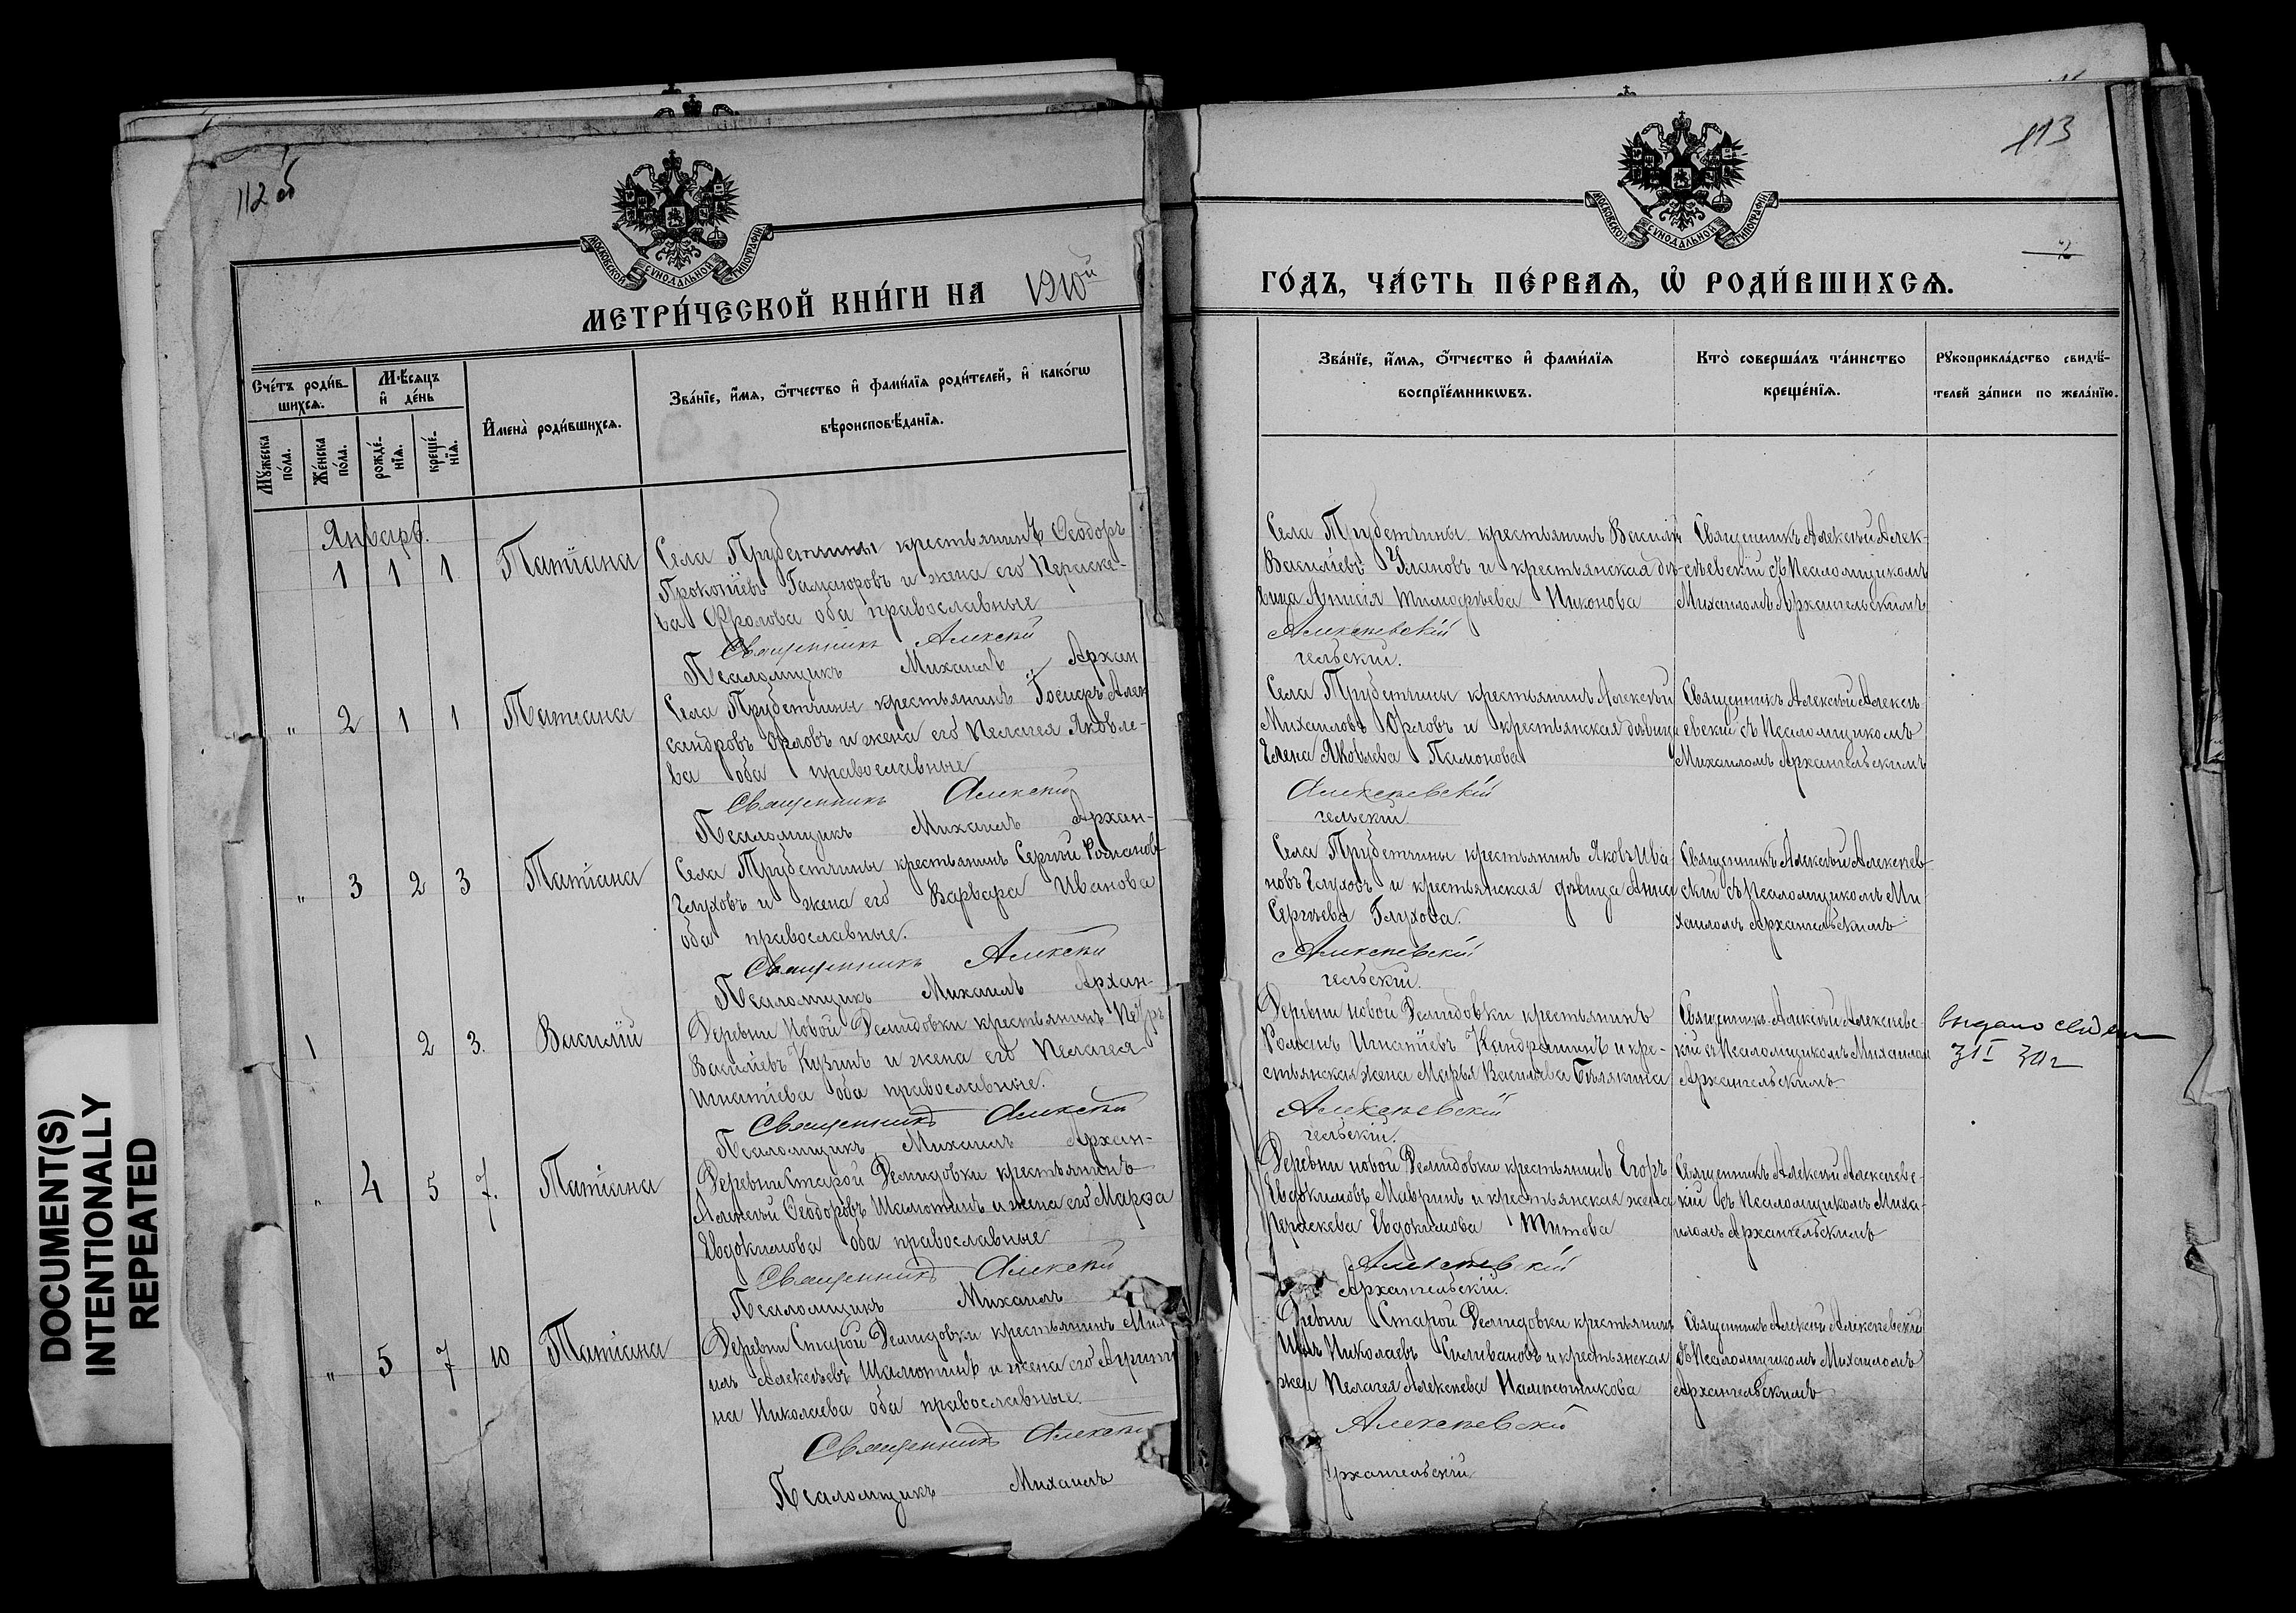 112 об
113
МОСКОВСКОЙ СѴНОДАЛЬНОЙ ТИПОГРАФІИ
МОСКОВСКОЙ СѴНОДАЛЬНОЙ ТИПОГРАФІИ
МЕТРИ́ЧЕСКОЙ КНИ́ГИ НА 1910й
ГО́ДЪ, ЧА́СТЬ ПЕ́РВАѦ, Ѽ РОДИ́ВШИХСѦ.
Сче́тъ роди́в-
шихсѧ.
М҃ѣсѧцъ
и҆ де́нь
Мꙋ́жеска
по́ла.
Же́нска
по́ла.
рожде́-
нїѧ.
креще́-
нїѧ.
И҆мена̀ роди́вшихсѧ.
Зва́нїе, и҆́мѧ, ѻ҆́тчество и҆ фами́лїѧ роди́телей, и҆ како́гѡ
вѣроисповѣ́данїѧ.
Зва́нїе, и҆́мѧ, ѻ҆́тчество и҆ фами́лїѧ
воспрїе́мникѡвъ.
Кто̀ соверша́лъ та́инство
креще́нїѧ.
Рꙋкоприкла́дство свидѣ́-
телей за́писи по жела́нїю.
Январь.
1 1 1 Татіана
Села Трубетчины крестьянинъ Ѳеодоръ
Прокопіевъ и жена его Параске-
ва Фролова оба православные
Священникъ Алексѣй
Псаломщикъ Михаилъ Архан
Села Трубетчины крестьянинъ Василій
Васильевъ Улановъ и крестьянская дѣ-
вица Анисія Тимофѣева Никонова
Алексѣевскій
гельскій.
Священникъ Алексѣй Алек-
сѣевскій съ Псаломщикомъ
Михаиломъ Архангельскимъ
" 2 1 1 Татіана
Села Трубетчины крестьянинъ Іосифъ Алек
сандровъ Орловъ и жена его Пелагея Яковле-
ва оба православные
Священникъ Алексѣй
Псаломщикъ Михаилъ Архан-
Села Трубетчины крестьянинъ Алексѣй
Михаиловъ Орловъ и крестьянская дѣвица
Елена Яковлева Памонова
Алексѣевскій
гельскій
Священникъ Алексѣй Алексѣ
евскій съ Псаломщикомъ
Михаиломъ Архангельскимъ
" 3 2 3 Татіана
Села Трубетчины крестьянинъ Сергѣй Романовъ
Глуховъ и жена его Варвара Иванова
оба православные.
Священникъ Алексѣй
Псаломщикъ Михаилъ Архан-
Села Трубетчины крестьянинъ Яковъ Ива
новъ Глуховъ и крестьянская дѣвица Анна
Сергѣева Глухова.
Алексѣевскій
гельскій.
Священникъ Алексѣй Алексѣев-
скій съ Псаломщикомъ Ми
хаиломъ Архангельскимъ
1 2 3. Василій
Деревни Новой Демидовки крестьянинъ Петръ
Василіевъ Кузинъ и жена его Пелагея
Игнатіева оба православные.
Священникъ Алексѣй
Псаломщикъ Михаилъ Архан-
Деревни новой Демидовки крестьянинъ
Романъ Игнатіевъ Кандрашинъ и кре-
стьянская жена Марья Васильева Бѣлякина
Алексѣевскій
гельскій.
Священникъ Алексѣй Алексѣевс-
кій съ Псаломщикомъ Михаиломъ
Архангельскимъ
выдано
31 I 30 г
" 4 5 7. Татіана
Деревни Старой Демидовки крестьянинъ
Алексѣй Ѳеодоровъ Шамотинъ и жена его Марѳа
Евдокимова оба православные
Священникъ Алексѣй
Псаломщикъ Михаилъ
Деревни новой Демидовки крестьянинъ Егоръ
Евдокимовъ Мавринъ и крестьянская жена
Параскева Евдокимова Титова
Алексѣевскій
Архангельскій.
Священникъ Алексѣй Алексѣевс-
кій съ Псаломщикомъ Миха-
иломъ Архангельскимъ
" 5 7 10 Татіана
Деревни Старой Демидовки крестьянинъ Миха
илъ Алексѣевъ Шамотинъ и жена его
на Николаева оба православные.
Священникъ Алексѣй
Псаломщикъ Михаилъ
Деревни Старой Демидовки крестьянинъ
Николаевъ Силивановъ и крестьянская
жен Пелагея Алексѣева
Алексѣевскій
Архангельскій
Священникъ Алексѣй Алексѣевскій
съ Псаломщикомъ Михаиломъ
Архангельскимъ
DOCUMENT(S)
INTENTIONALLY
REPEATED